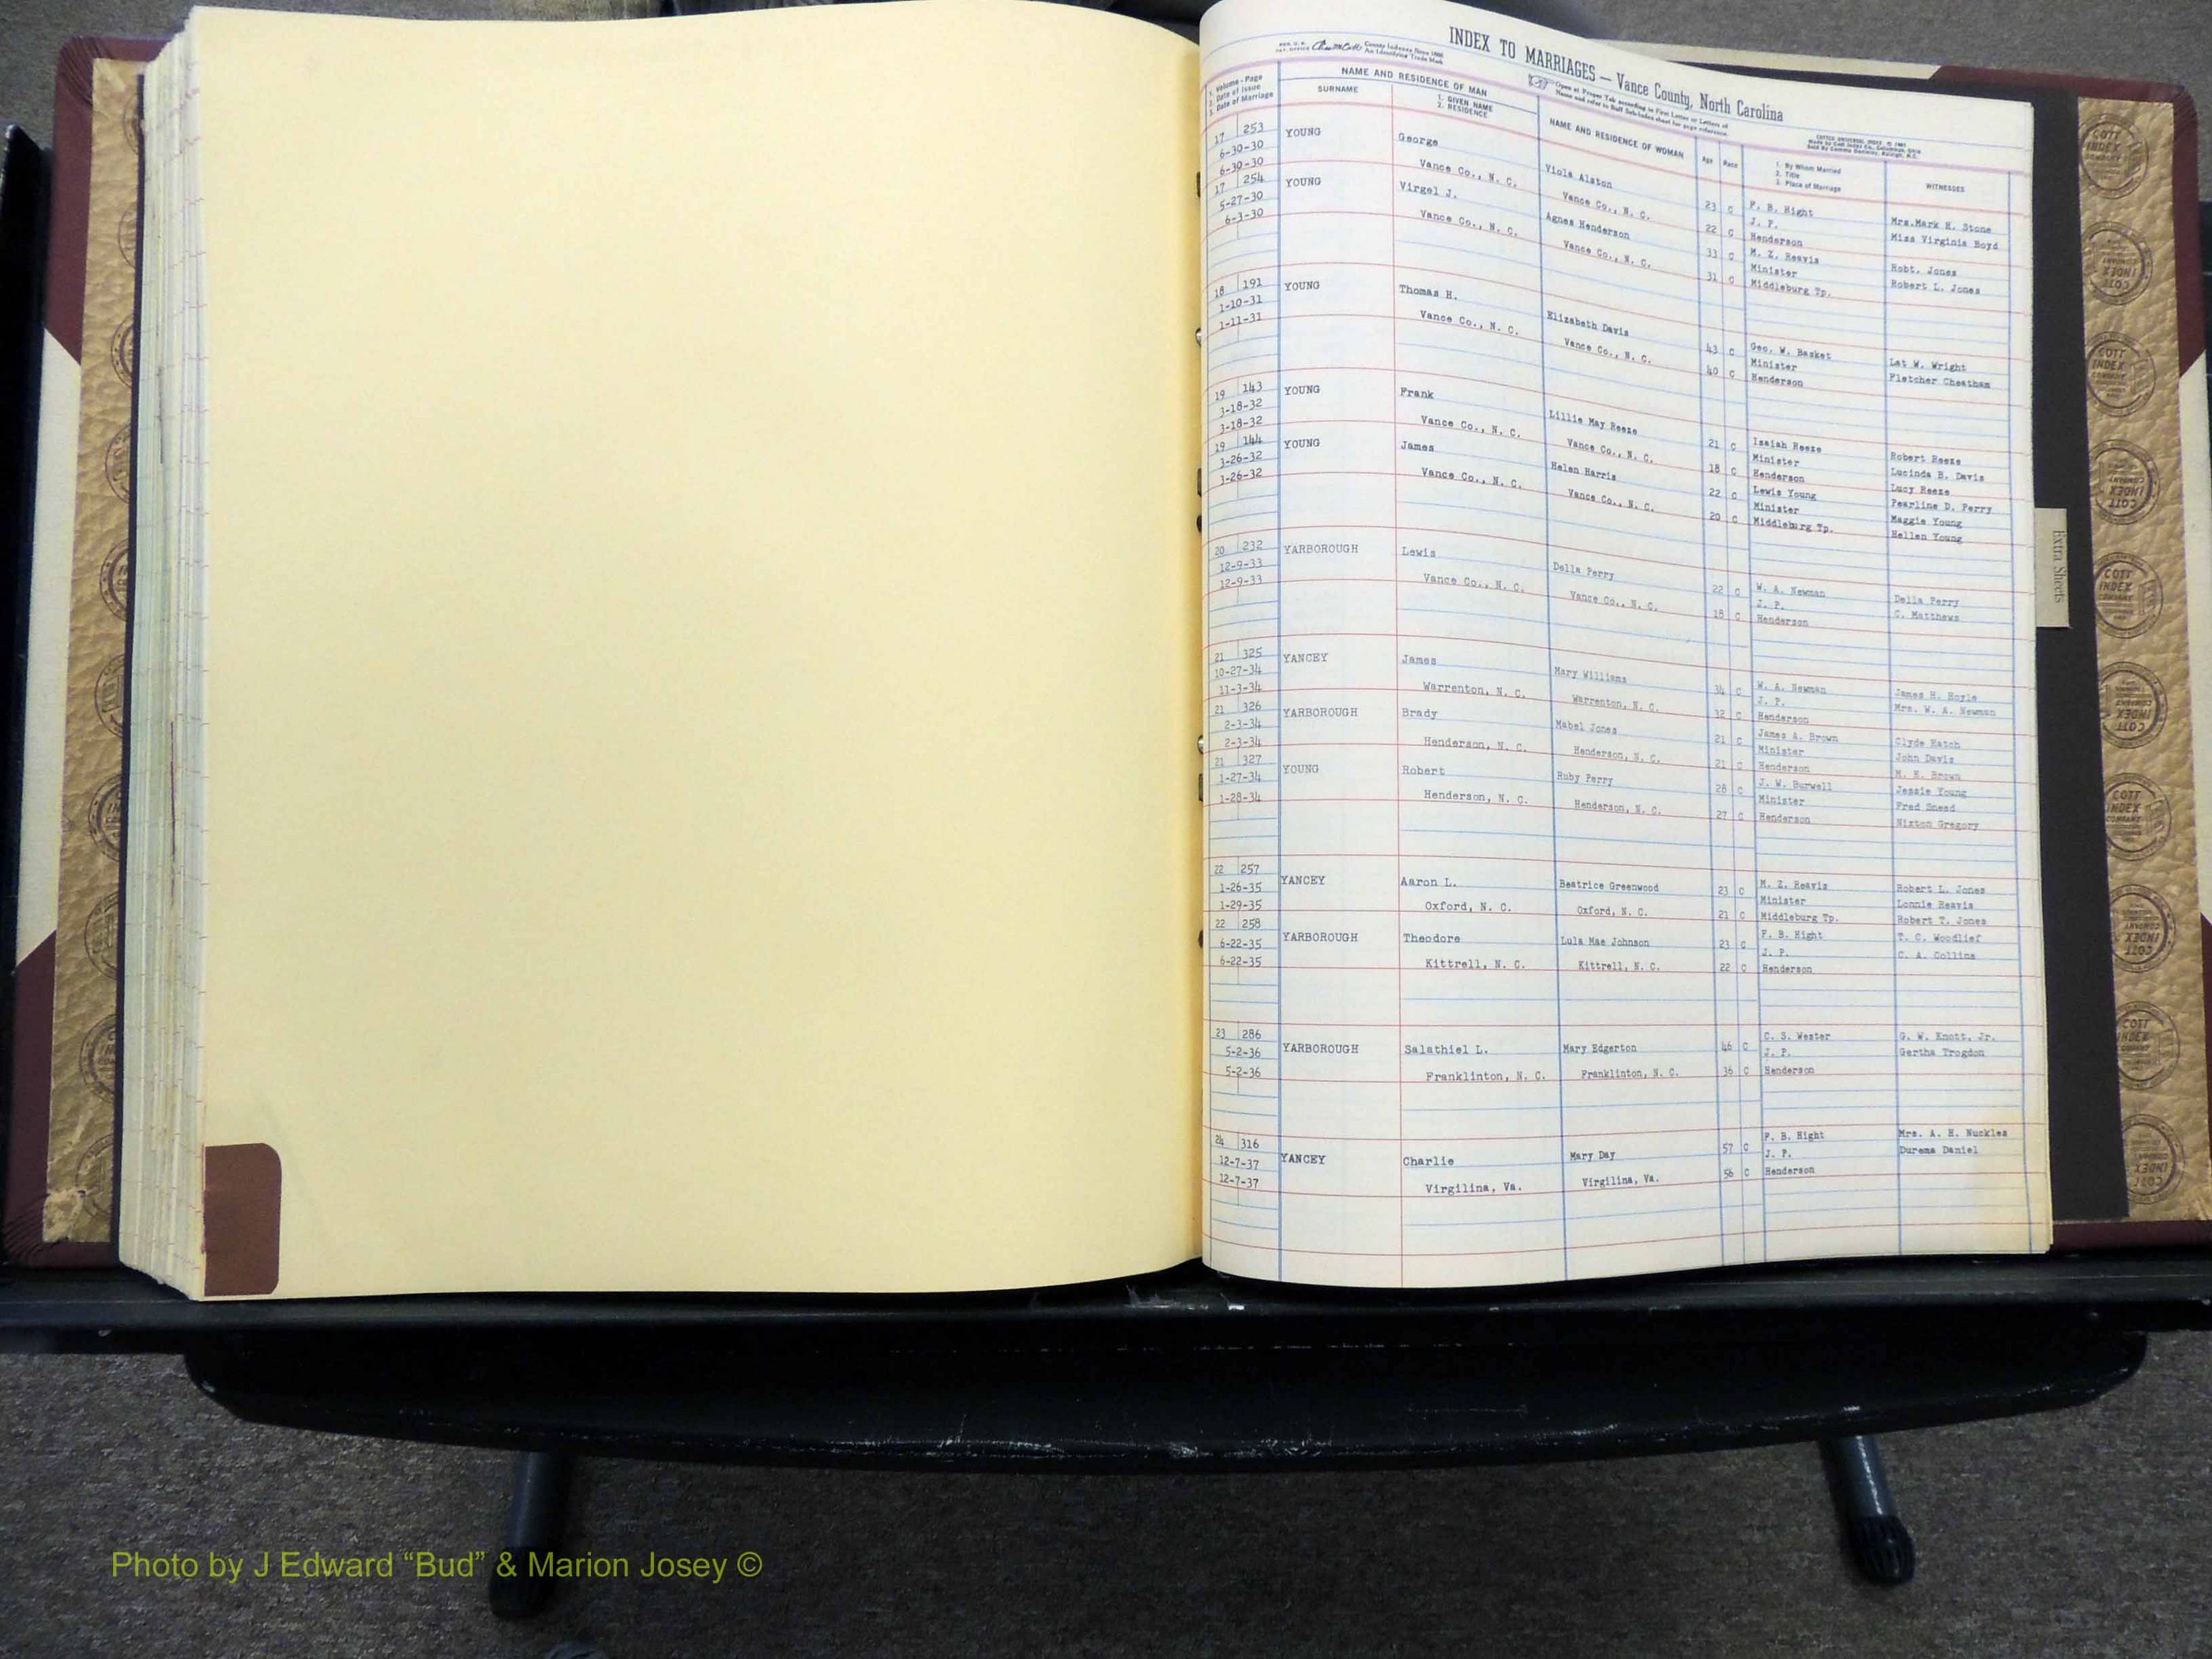 INDEX TO MARRIAGES — Vance County, North Carolina
REG. U. S. PAT. OFFICE County Indexes Since 1888 An Identifying Trade Mark
Open at Proper Tab according to First Letter or Letters of
Name and refer to Buff Sub-Index sheet for page reference.
1. Volume - Page
2. Date of Issue
3. Date of Marriage
NAME AND RESIDENCE OF MAN
SURNAME
1. GIVEN NAME
2. RESIDENCE
NAME AND RESIDENCE OF WOMAN
Age Race
1. By Whom Married
2. Title
3. Place of Marriage
WITNESSES
17 253 YOUNG George Viola Alston 23 C F. B. Hight Mrs.Mark H. Stone
6-30-30 Vance Co., N. C. Vance Co., N. C. J. P. Miss Virginia Boyd
6-30-30 22 C Henderson
17 254 YOUNG Virgel J. Agnes Henderson 33 C M. Z. Reavis Robt. Jones
5-27-30 Vance Co., N. C. Vance Co., N. C. Minister Robert L. Jones
6-3-30 31 C Middleburg Tp.
18 191 YOUNG Thomas H. Elizabeth Davis 43 C Geo. W. Basket Lat W. Wright
1-10-31 Vance Co., N. C. Vance Co., N. C. Minister Fletcher Cheatham
1-11-31 40 C Henderson
19 143 YOUNG Frank Lillie May Reeze 21 C Isaiah Reeze Robert Reeze
3-18-32 Vance Co., N. C. Vance Co., N. C. Minister Lucinda B. Davis
3-18-32 18 C Henderson Lucy Reeze
19 144 YOUNG James Helen Harris 22 C Lewis Young Pearline D. Perry
3-26-32 Vance Co., N. C. Vance Co., N. C. Minister Maggie Young
3-26-32 20 C Middleburg Tp. Hellen Young
20 232 YARBOROUGH Lewis Della Perry 22 C W. A. Newman Della Perry
12-9-33 Vance Co., N. C. Vance Co., N. C. J. P. C. Matthews
12-9-33 18 C Henderson
21 325 YANCEY James Mary Williams 34 C W. A. Newman James H. Hoyle
10-27-34 Warrenton, N. C. Warrenton, N. C. J. P. Mrs. W. A. Newman
11-3-34 32 C Henderson
21 326 YARBOROUGH Brady Mabel Jones 21 C James A. Brown Clyde Hatch
2-3-34 Henderson, N. C. Henderson, N. C. Minister John Davis
2-3-34 21 C Henderson M. E. Brown
21 327 YOUNG Robert Ruby Perry 28 C J. W. Burwell Jessie Young
1-27-34 Henderson, N. C. Henderson, N. C. Minister Fred Sneed
1-28-34 27 C Henderson Nixton Gregory
22 257 YANCEY Aaron L. Beatrice Greenwood 23 C M. Z. Reavis Robert L. Jones
1-26-35 Oxford, N. C. Oxford, N. C. Minister Lonnie Reavis
1-29-35 21 C Middleburg Tp. Robert T. Jones
22 258 YARBOROUGH Theodore Lula Mae Johnson 23 C F. B. Hight T. C. Woodlief
6-22-35 Kittrell, N. C. Kittrell, N. C. J. P. C. A. Collins
6-22-35 22 C Henderson
23 286 YARBOROUGH Salathiel L. Mary Edgerton 46 C C. S. Wester G. W. Knott, Jr.
5-2-36 Franklinton, N. C. Franklinton, N. C. J. P. Gertha Trogdon
5-2-36 36 C Henderson
24 316 YANCEY Charlie Mary Day 57 C F. B. Hight Mrs. A. H. Nuckles
12-7-37 Virgilina, Va. Virgilina, Va. J. P. Durema Daniel
12-7-37 56 C Henderson
Extra Sheets
COTT INDEX COMPANY
Photo by J Edward “Bud” & Marion Josey ©